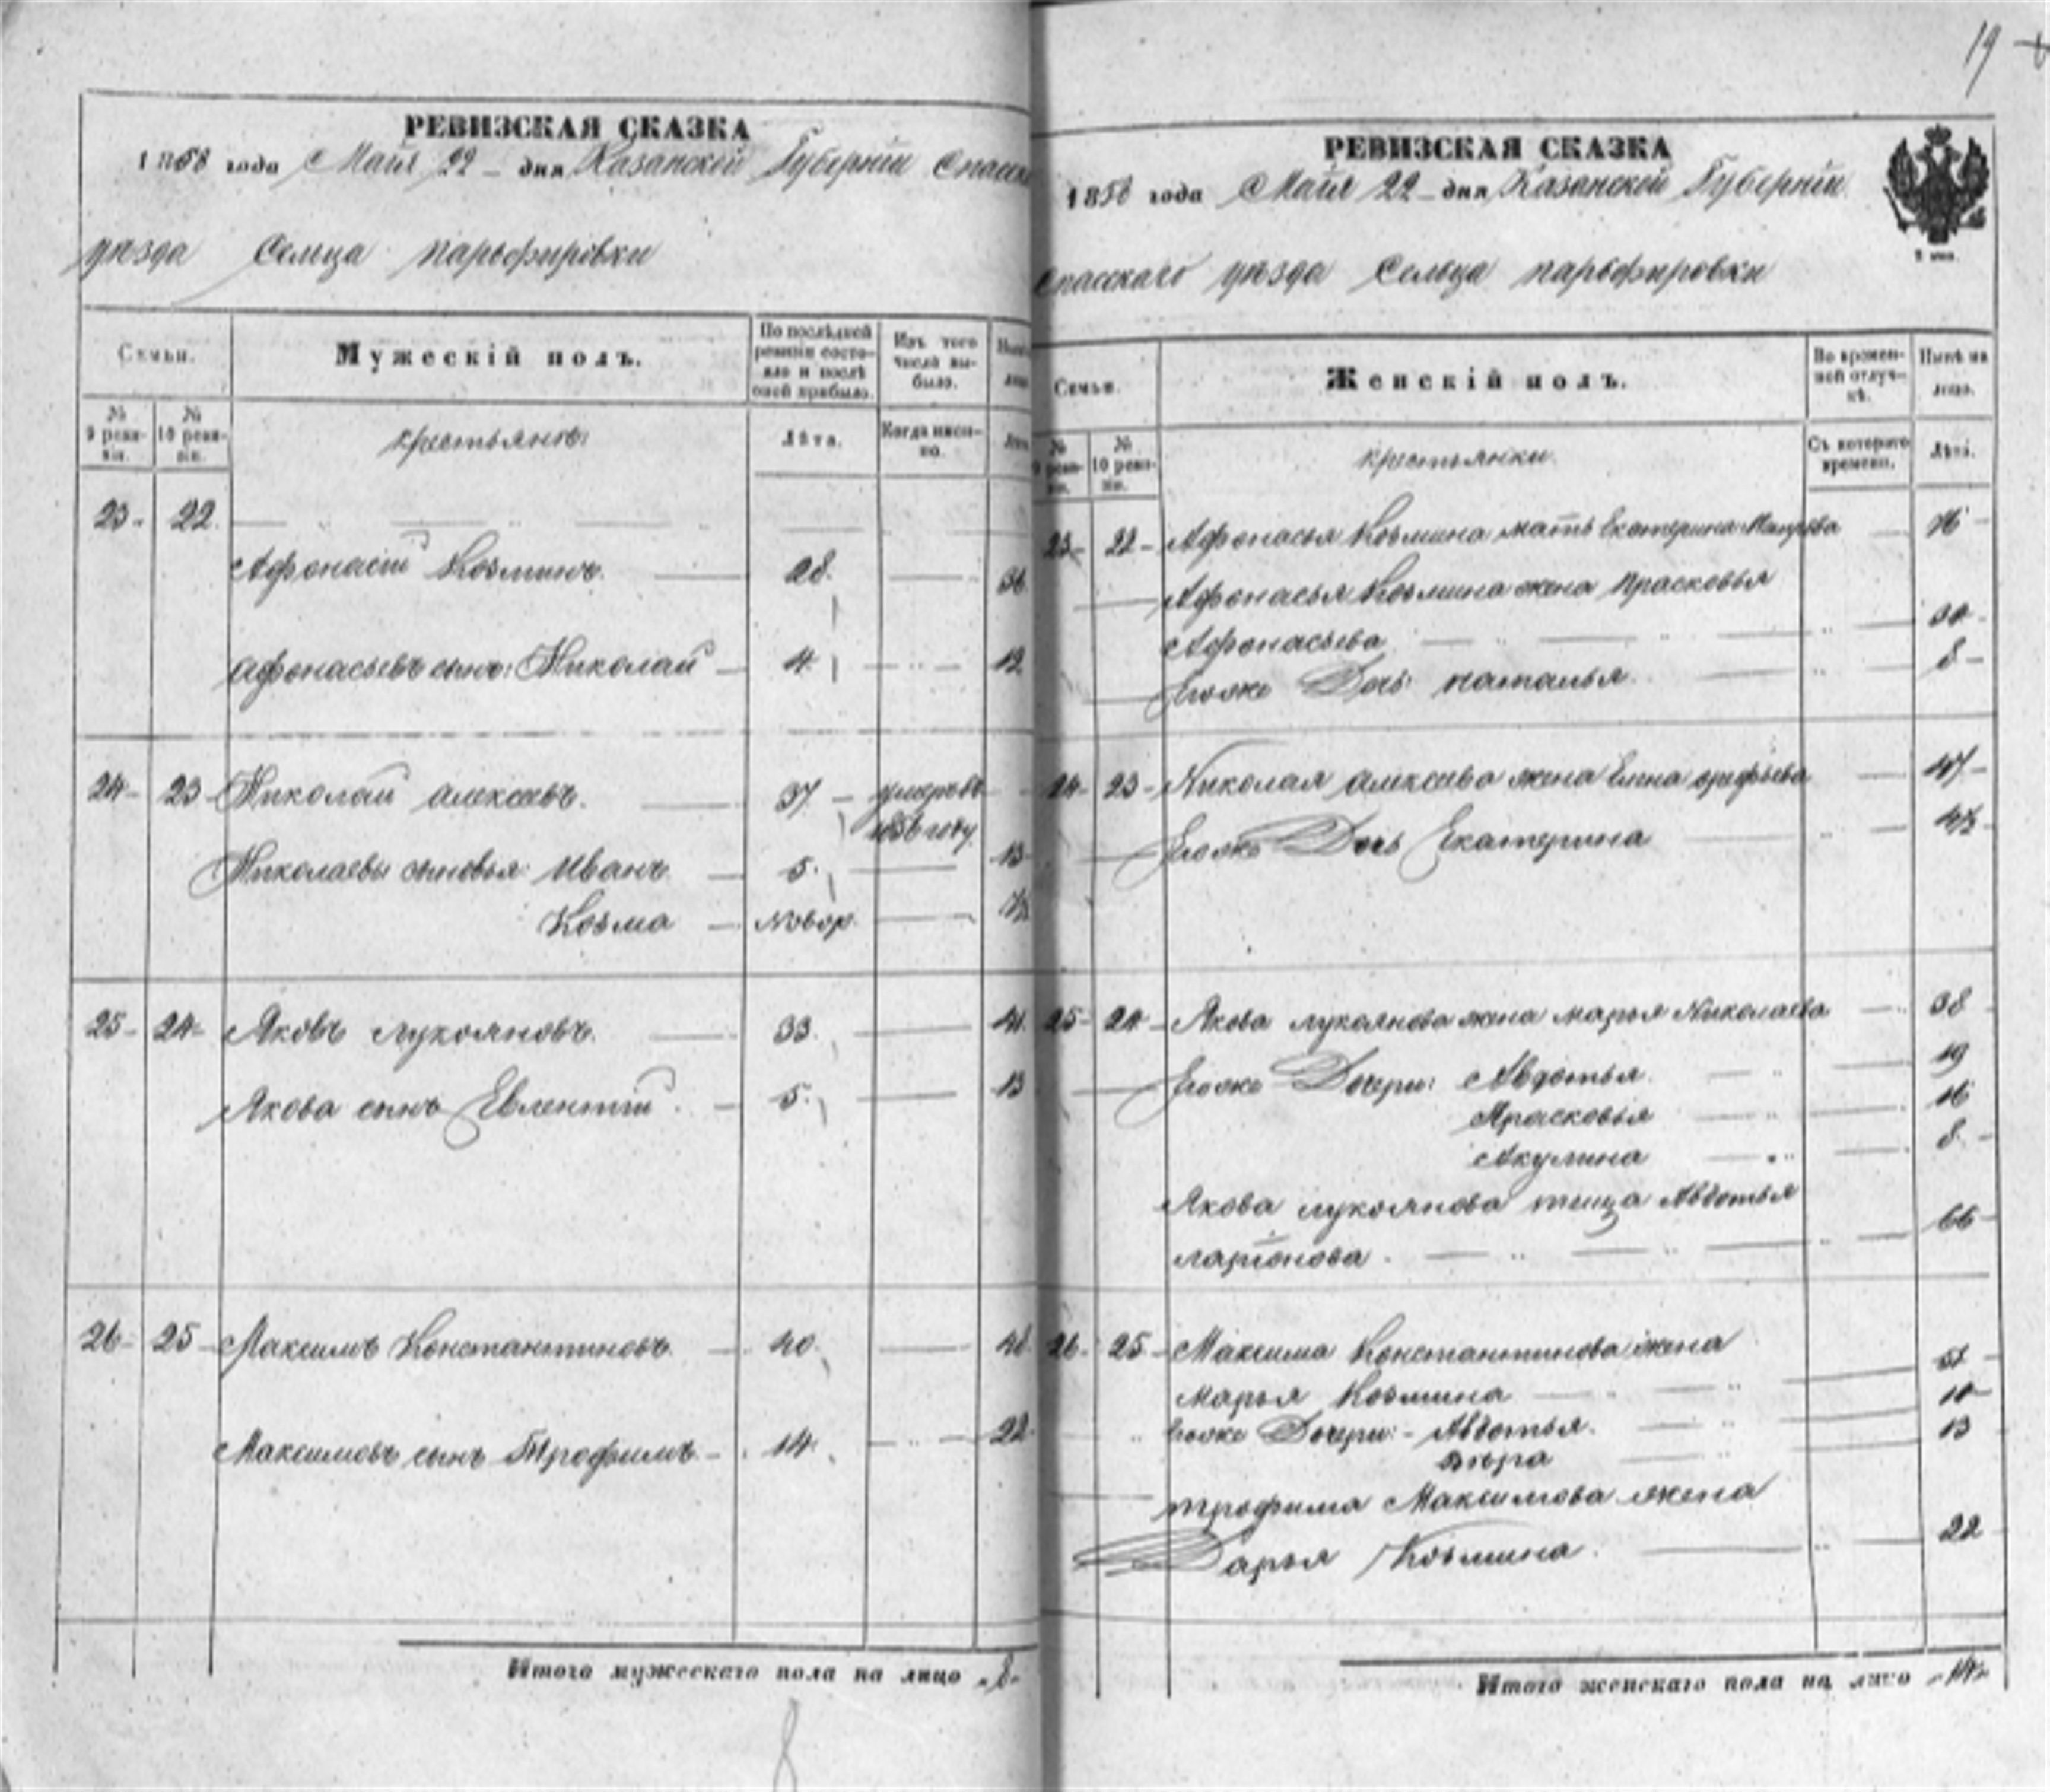 19
РЕВИЗСКАЯ СКАЗКА
1858 года Майя 22 дня Казанской Губернiи Спасска
уѣзда Сельца парьфировки
Семьи.
Мужескiй полъ.
По послѣдней ревизiи состояло и послѣ оной прибыло.
Изъ того числа выбыло.
№ 9 ревизiи.
№ 10 ревизiи.
крестьянъ:
Лѣта.
Когда именно.
23 22
Афонасiй Козминъ. 28
Афонасьевъ сынъ: Николай 4 12
24 23 Николай алексеевъ. 37 умеръ въ 1856 году
Николаевы сыновья: Иванъ 5 13
Козма новор.
25 24 Яковъ лукояновъ. 33 41
Якова сынъ Евлентiй 5 13
26 25 Максимъ Константиновъ 40 48
Максимовъ сынъ Трофимъ 14 22
Итого мужескаго пола на лицо 8
8
РЕВИЗСКАЯ СКАЗКА
1858 года Майя 22 дня Казанской Губернiи
Спасскаго уѣзда Сельца парьфировки
Семьи.
Женскiй полъ.
Во временной отлучкѣ.
Нынѣ на лицо.
№ 9 ревизiи.
№ 10 ревизiи.
крестьянки.
Съ котораго времени.
Лѣта.
23 22 Афонасья Козмина мать Екатерина
Афонасья Козмина жена Прасковья
Афонасьева
Егоже Дочь: наталья 8
24 23 Николая алексеева жена Елена 47
Егоже Дочь Екатерина
25 24 Якова лукоянова жена марья Николаева 38
Егоже Дочери: Авдотья 19
Прасковья 16
Акулина 8
Якова лукоянова теща Авдотья
ларiонова 66
26 25 Максима Константинова жена
марья Козмина
Егоже Дочери: Авдотья
вѣра 13
трофима Максимова жена
Дарья Козмина 22
Итого женскаго пола на лицо 14